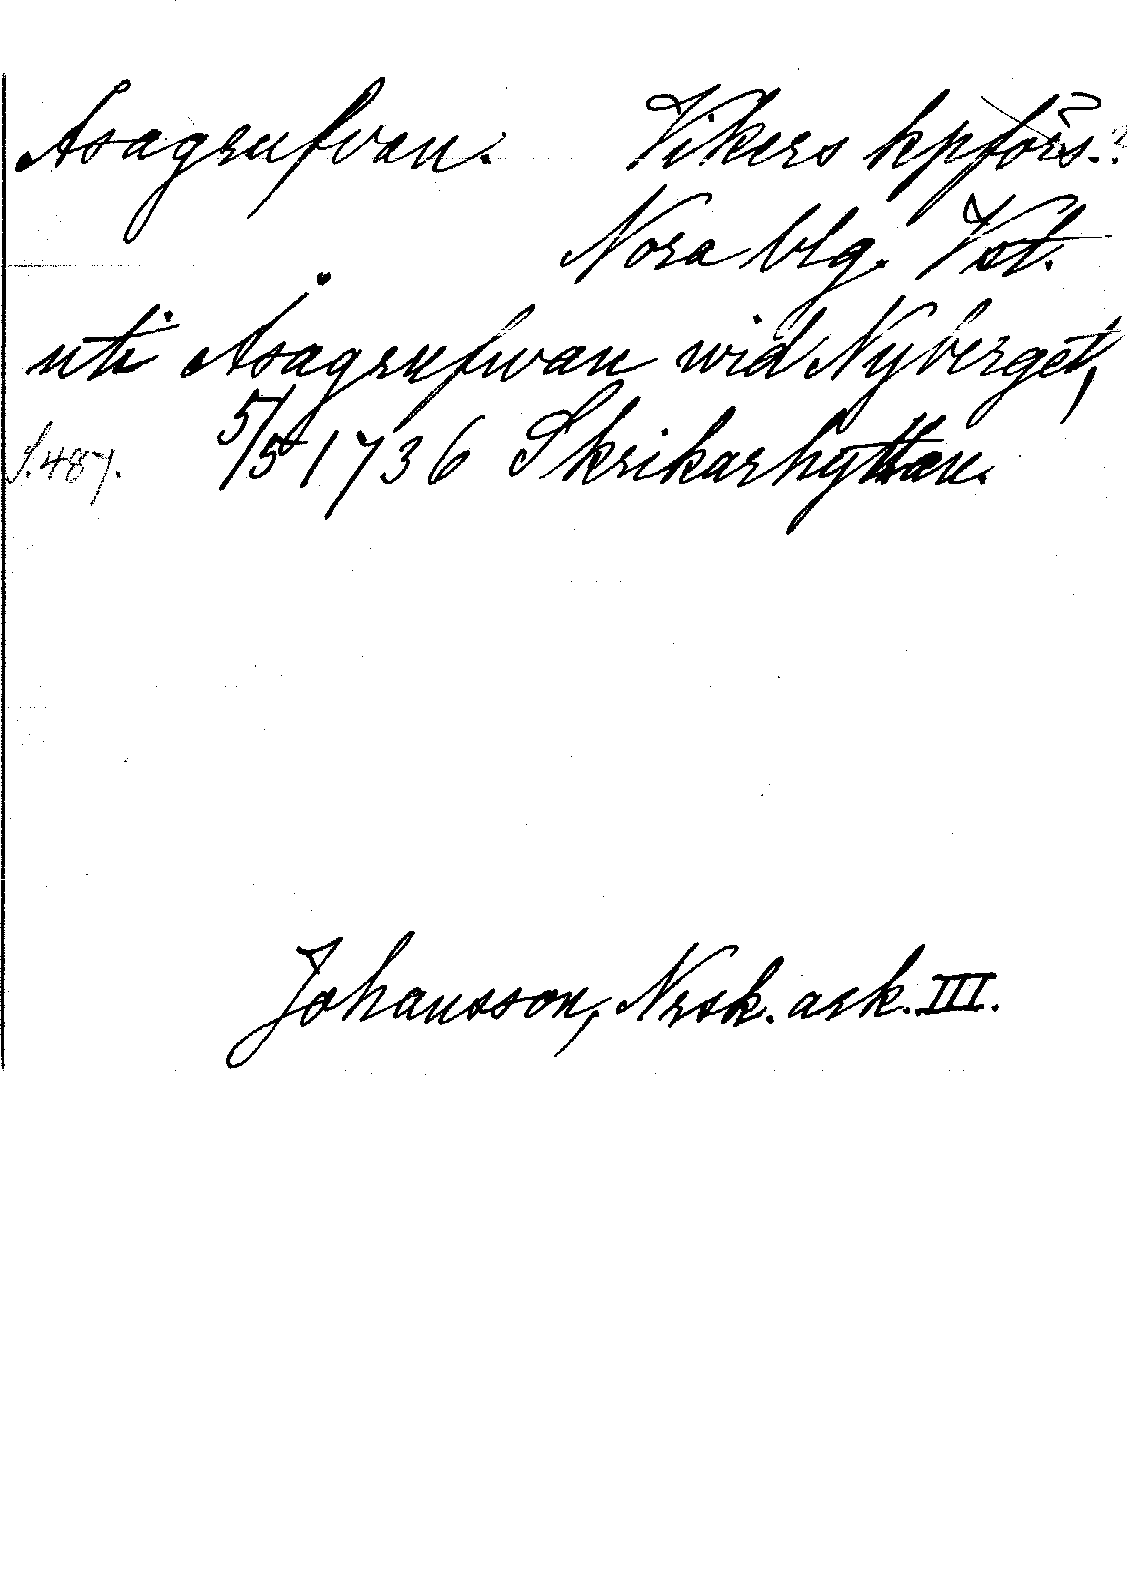 Åsagrufvan. Vikers kpförs.?
Nora blg. Vstl.
uti Åsagrufwan wid Nyberget,
S. 487. 5/5 1736 Skrikarhyttan.
Johansson, Nrsk. ark. III.